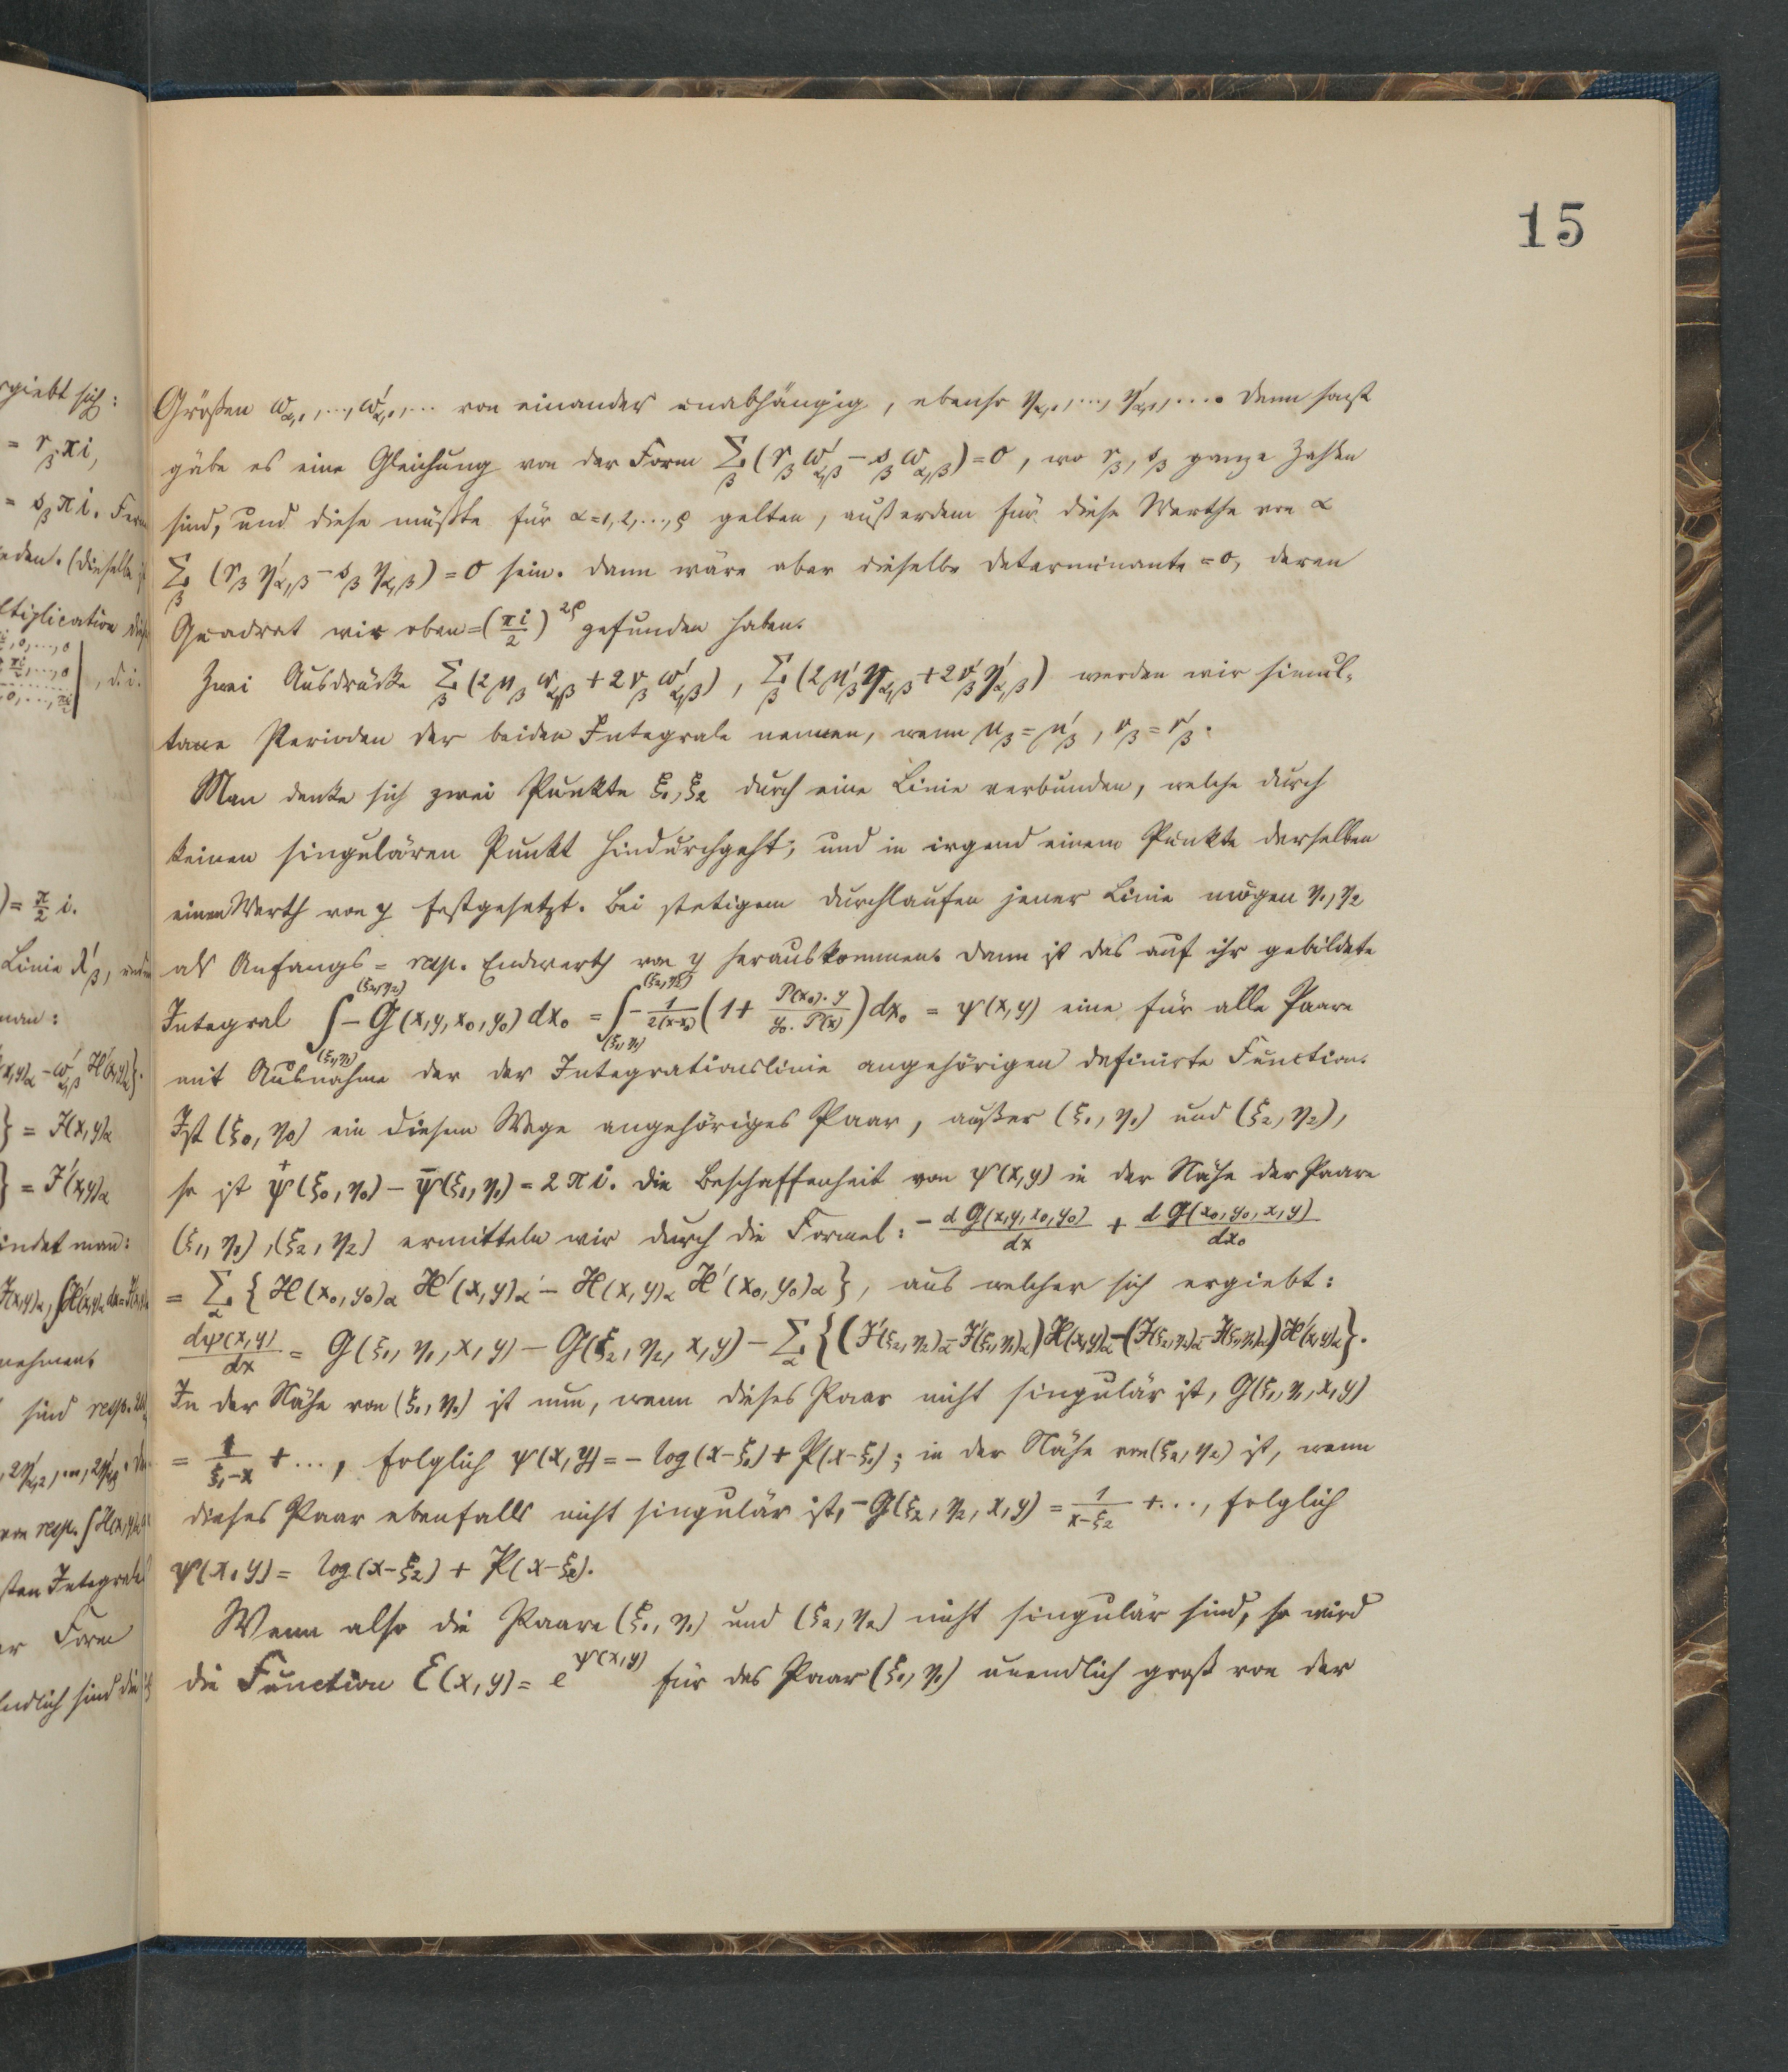 15
Größen ω_{α,1},…,ω'_{α,1},… von einander unabhängig, ebenso η_{α,1},…,η'_{α,1},…. Denn sonst
gäbe es eine Gleichung von der Form Σ_β (r_β ω'_{α,β} − s_β ω_{α,β}) = 0, wo r_β, s_β ganze Zahlen
sind, und diese müßte für α=1,2,…,ρ gelten, außerdem für diese Werthe von α
Σ_β (r_β η'_{α,β} − s_β η_{α,β}) = 0 sein. Dann wäre aber dieselbe Determinante = 0, deren
Quadrat wir eben = (πi/2)^{2ρ} gefunden haben.
Zwei Ausdrücke Σ_β (2μ_β ω_{α,β} + 2ν_β ω'_{α,β}), Σ_β (2μ'_β η_{α,β} + 2ν'_β η'_{α,β}) werden wir simul-
tane Perioden der beiden Integrale nennen, wenn μ_β = μ'_β, ν_β = ν'_β.
Man denke sich zwei Punkte ξ₁, ξ₂ durch eine Linie verbunden, welche durch
keinen singulären Punkt hindurchgeht, und in irgend einem Punkte derselben
einen Werth von y festgesetzt. Bei stetigem Durchlaufen jener Linie mögen η₁, η₂
als Anfangs- resp. Endwerth von y herauskommen. Dann ist das auf ihr gebildete
Integral ∫_{(ξ₁,η₁)}^{(ξ₂,η₂)} −G(x,y,x₀,y₀) dx₀ = ∫_{(ξ₁,η₁)}^{(ξ₂,η₂)} −1/2(x−x₀) (1 + P(x₀).y / y₀.P(x)) dx₀ = ψ(x,y) eine für alle Paare
mit Ausnahme der der Integrationslinie angehörigen definirte Function.
Ist (ξ₀, η₀) ein diesem Wege angehöriges Paar, außer (ξ₁, η₁) und (ξ₂, η₂),
so ist ψ⁺(ξ₀, η₀) − ψ⁻(ξ₀, η₀) = 2πi. Die Beschaffenheit von ψ(x,y) in der Nähe der Paare
(ξ₁, η₁), (ξ₂, η₂) ermitteln wir durch die Formel: − dG(x,y,x₀,y₀)/dx + dG(x₀,y₀,x,y)/dx₀
= Σ_α {H(x₀,y₀)_α H'(x,y)_α − H(x,y)_α H'(x₀,y₀)_α}, aus welcher sich ergiebt:
dψ(x,y)/dx = G(ξ₁, η₁, x, y) − G(ξ₂, η₂, x, y) − Σ_α {(J'(ξ₂,η₂)_α − J'(ξ₁,η₁)_α) H(x,y)_α − (J(ξ₂,η₂)_α − J(ξ₁,η₁)_α) H'(x,y)_α}.
In der Nähe von (ξ₁, η₁) ist nun, wenn dieses Paar nicht singulär ist, G(ξ₁, η₁, x, y)
= 1/(ξ₁−x) + …, folglich ψ(x,y) = − log(x−ξ₁) + P(x−ξ₁); in der Nähe von (ξ₂, η₂) ist, wenn
dieses Paar ebenfalls nicht singulär ist, −G(ξ₂, η₂, x, y) = 1/(x−ξ₂) + …, folglich
ψ(x,y) = log(x−ξ₂) + P(x−ξ₂).
Wenn also die Paare (ξ₁, η₁) und (ξ₂, η₂) nicht singulär sind, so wird
die Function E(x,y) = e^{ψ(x,y)} für das Paar (ξ₁, η₁) unendlich groß von der